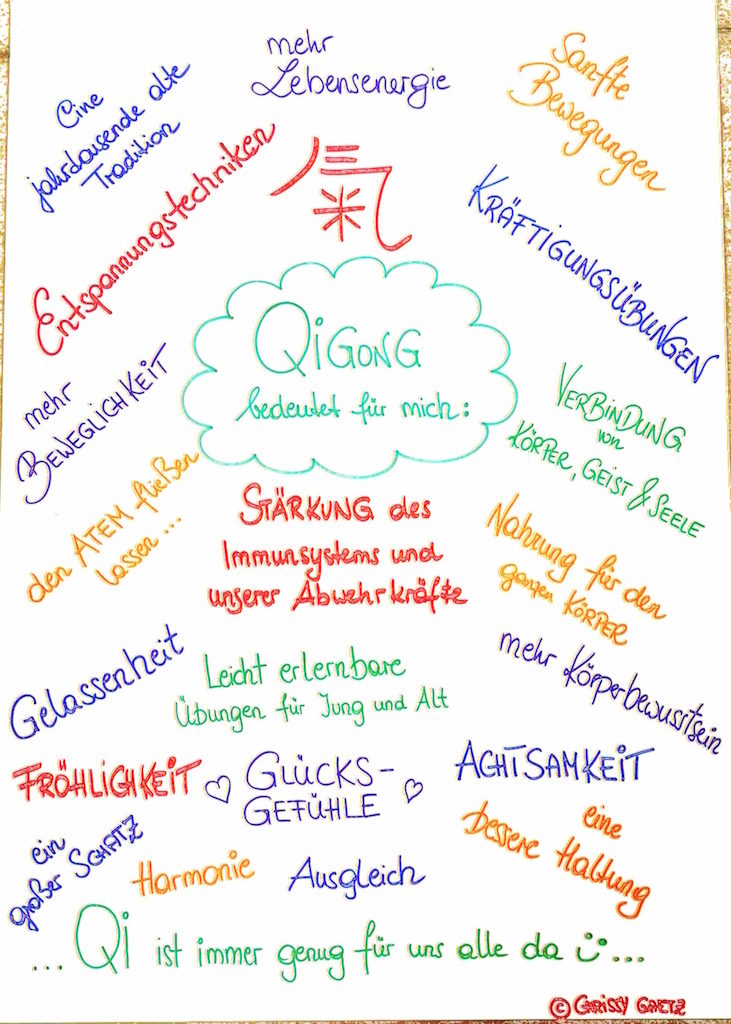 mehr
Lebensenergie
Sanfte
Bewegungen
Eine
jahrtausende alte
Tradition
Entspannungstechniken
氣
KRÄFTIGUNGSÜBUNGEN
QiGONG
bedeutet für mich:
mehr
BEWEGLICHKEIT
VERBINDUNG
von
KÖRPER, GEIST & SEELE
den ATEM fließen
lassen ...
STÄRKUNG des
Immunsystems und
unserer Abwehrkräfte
Nahrung für den
ganzen KÖRPER
Gelassenheit
Leicht erlernbare
Übungen für Jung und Alt
mehr Körperbewusstsein
FRÖHLICHKEIT
GLÜCKS-
GEFÜHLE
ACHTSAMKEIT
ein
großer SCHATZ
Harmonie
Ausgleich
eine
bessere Haltung
... Qi ist immer genug für uns alle da ...
© CHRISSY GOETZ